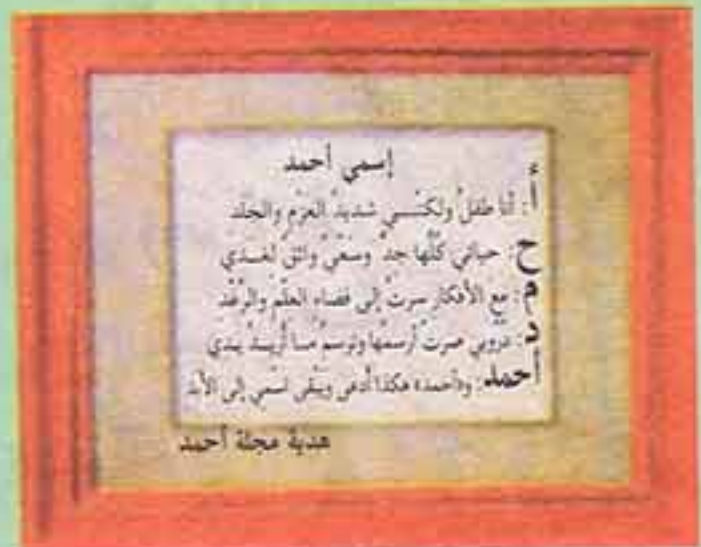 إسمي أحمد
أ: أنا طفلٌ ولكنـــي شديدُ العزْمِ والجَلَد
ح: حياتي كُلُّها جدٌّ وسَعْيٌ واثقٌ لغــدي
م: مع الأفكار سرتُ إلى فضاءِ العلْمِ والرغَد
د: دروبي صرتُ أرسمُها وترسمُ مـا أُريــدُ يـدي
أحمد: و«أحمد» هكذا أُدعى ويَبْقى اسْمي إلى الأبد
هدية مجلة أحمد